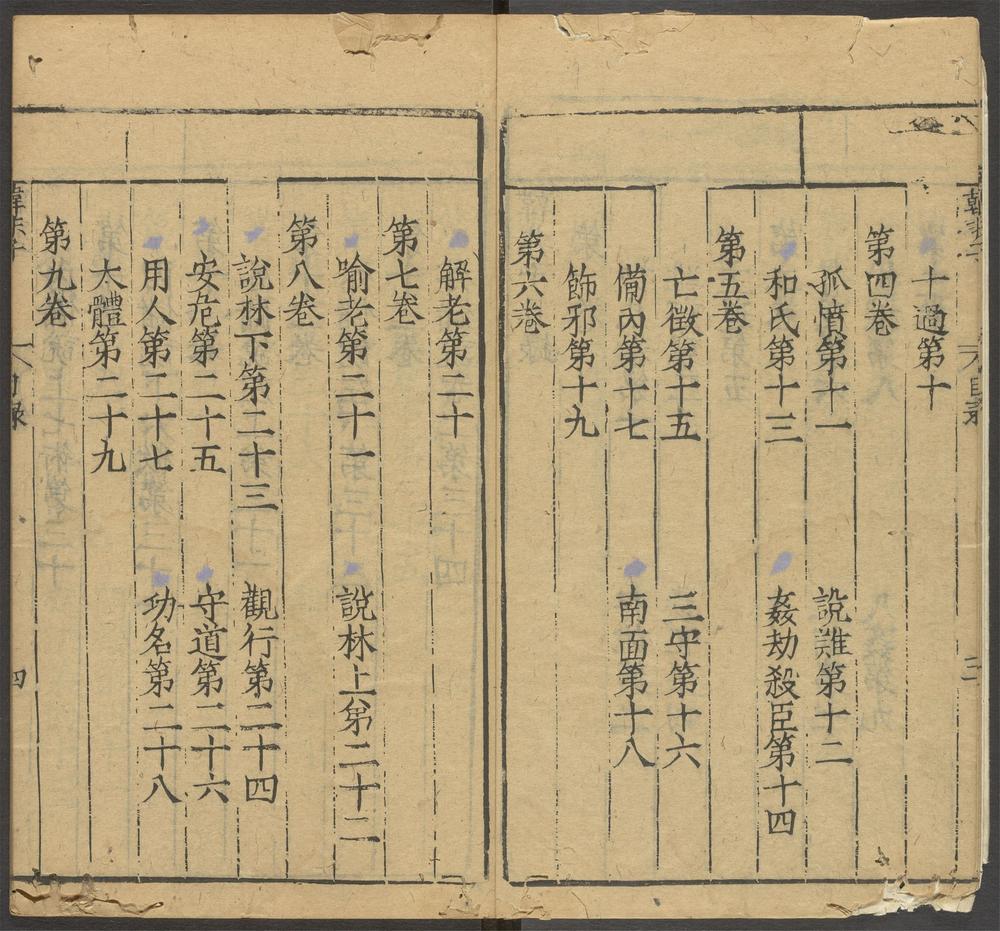 十過第十
第四卷
孤憤第十一 說難第十二
和氏第十三 姦劫殺臣第十四
第五卷
亡徵第十五 三守第十六
備內第十七 南面第十八
飾邪第十九
第六卷
解老第二十
第七卷
喻老第二十一 說林上第二十二
第八卷
說林下第二十三 觀行第二十四
安危第二十五 守道第二十六
用人第二十七 功名第二十八
大體第二十九
第九卷
目錄 四